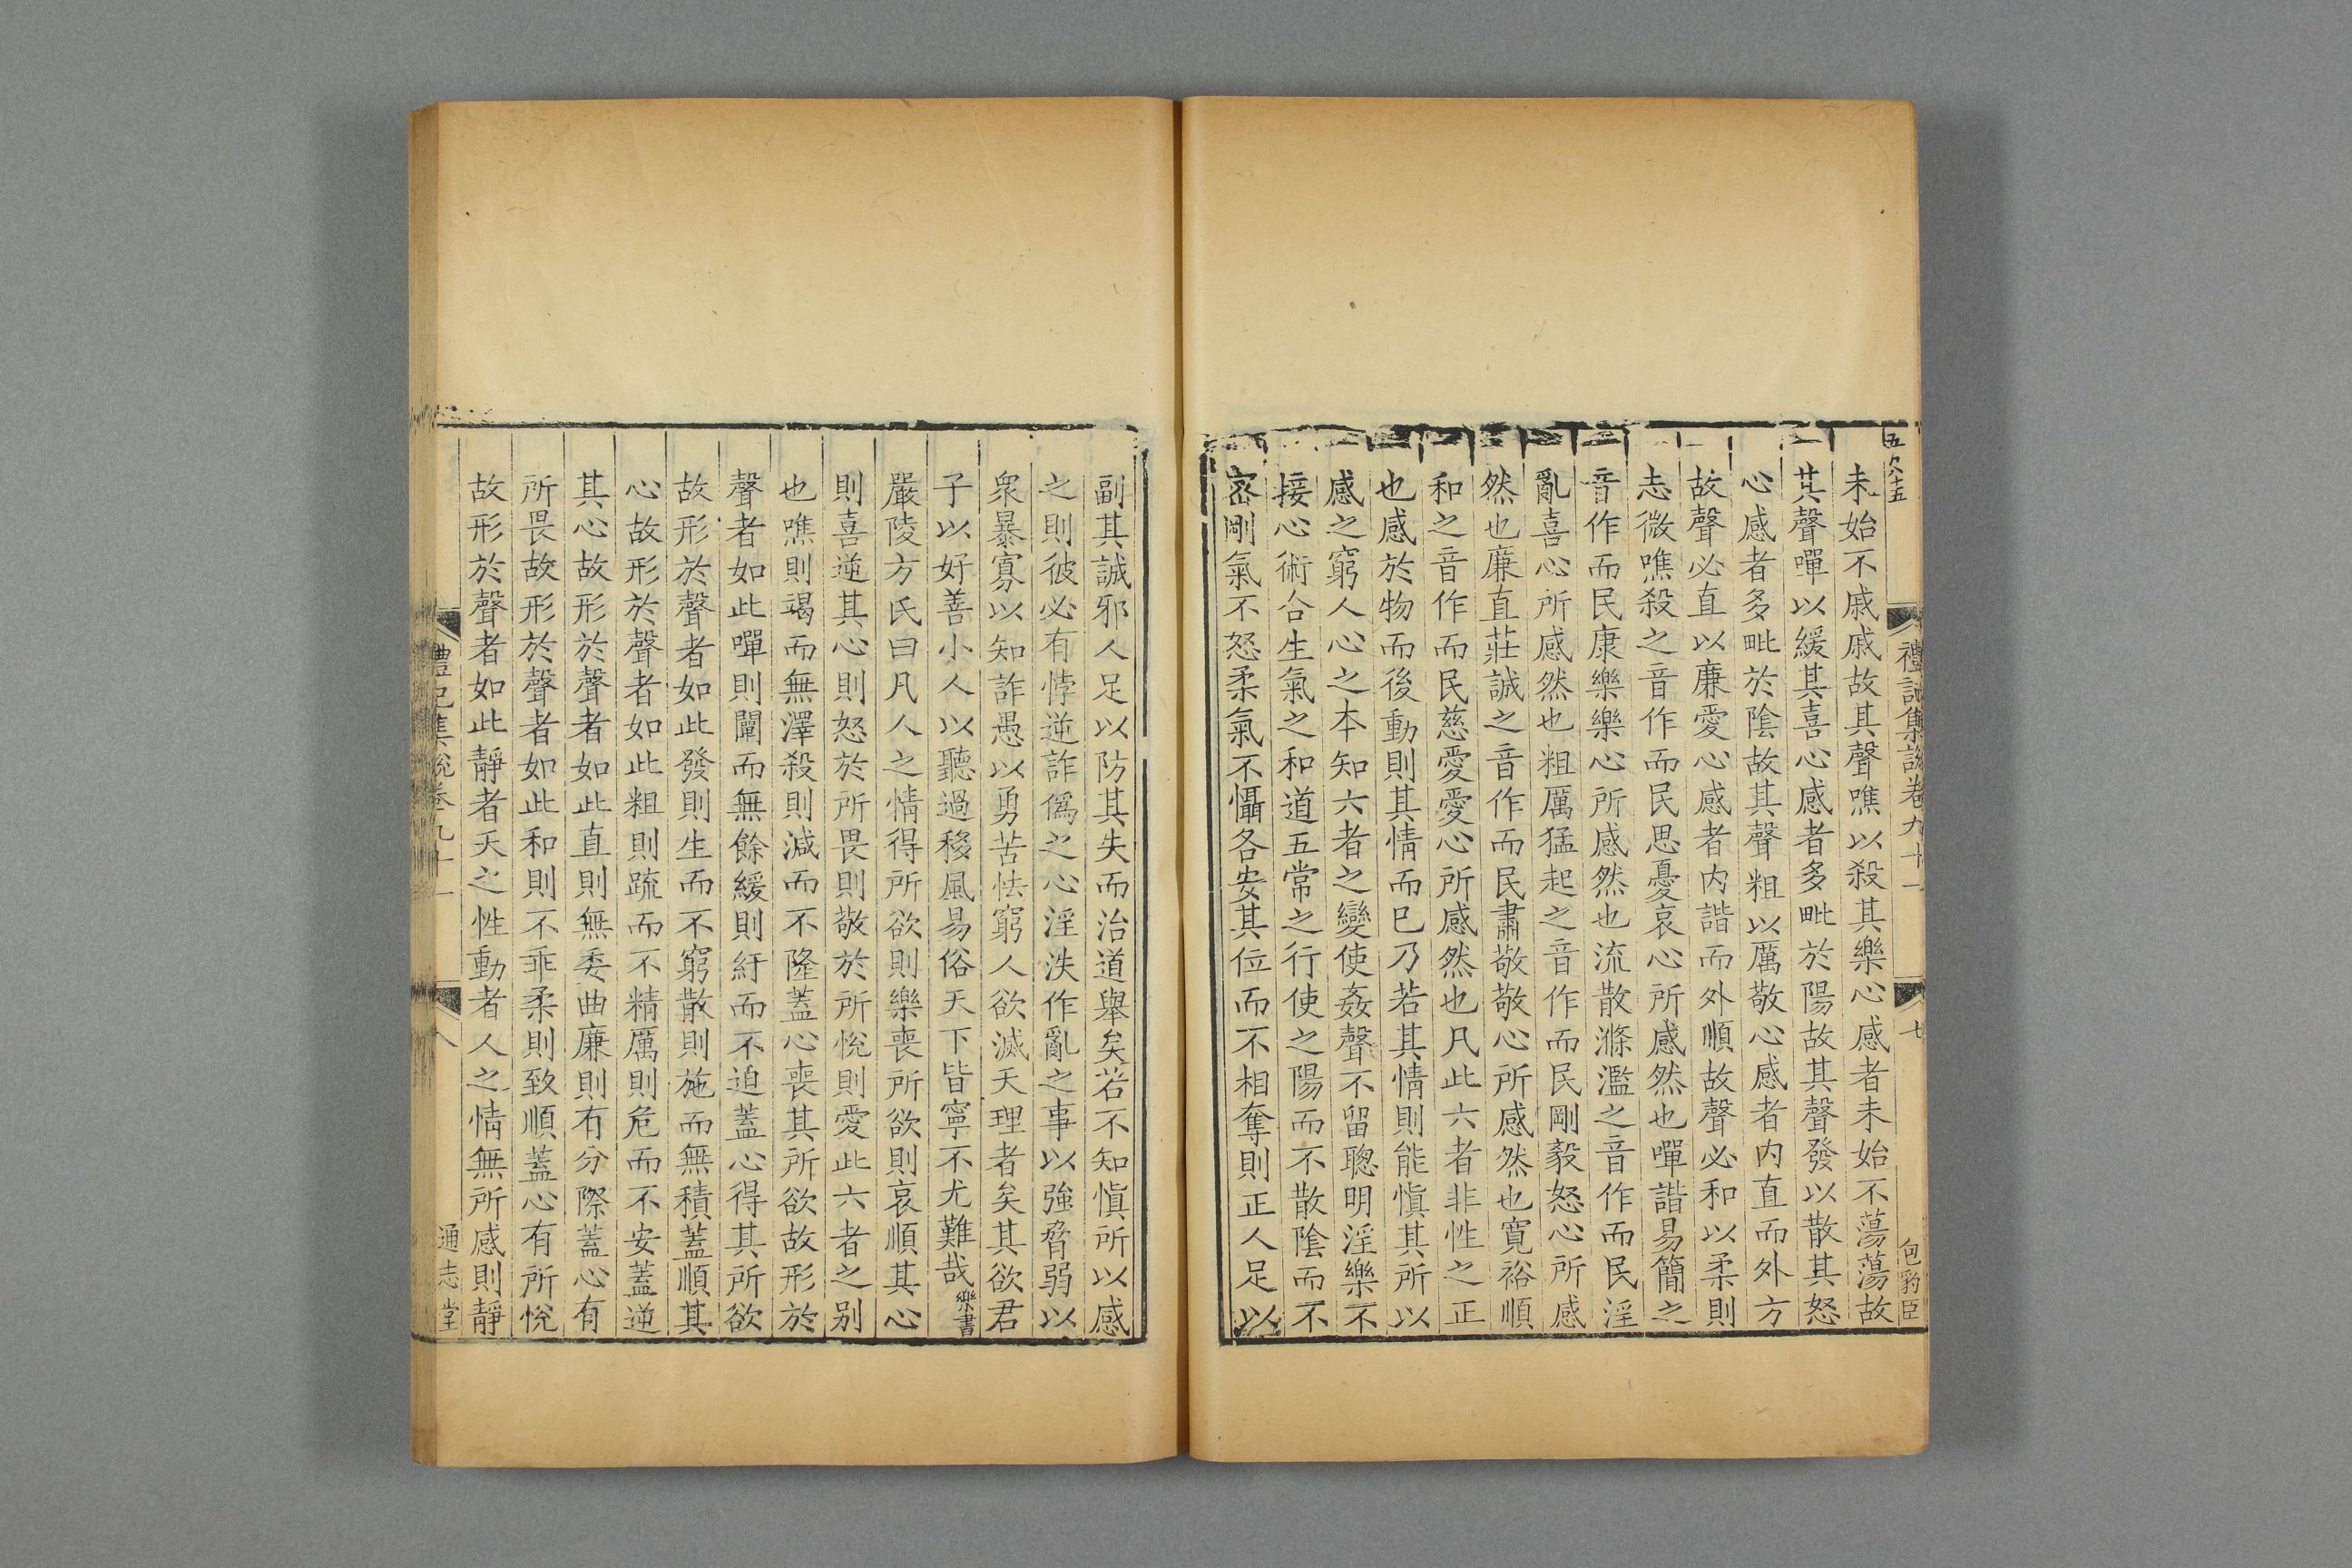 五欠十五
禮記集說卷九十一
七
包豹臣
未始不戚戚故其聲噍以殺其樂心感者未始不蕩蕩故
其聲嘽以緩其喜心感者多毗於陽故其聲發以散其怒
心感者多毗於陰故其聲粗以厲敬心感者内直而外方
故聲必直以廉愛心感者内諧而外順故聲必和以柔則
志微噍殺之音作而民思憂哀心所感然也嘽諧易簡之
音作而民康樂樂心所感然也流散滌濫之音作而民淫
亂喜心所感然也粗厲猛起之音作而民剛毅怒心所感
然也廉直莊誠之音作而民肅敬敬心所感然也寛裕順
和之音作而民慈愛愛心所感然也凡此六者非性之正
也感於物而後動則其情而已乃若其情則能愼其所以
感之窮人心之本知六者之變使姦聲不留聰明淫樂不
接心術合生氣之和道五常之行使之陽而不散陰而不
密剛氣不怒柔氣不懾各安其位而不相奪則正人足以
副其誠邪人足以防其失而治道舉矣若不知愼所以感
之則彼必有悖逆詐僞之心淫泆作亂之事以強脅弱以
衆暴寡以知詐愚以勇苦怯窮人欲滅天理者矣其欲君
子以好善小人以聽過移風易俗天下皆寧不尤難哉樂書
嚴陵方氏曰凡人之情得所欲則樂喪所欲則哀順其心
則喜逆其心則怒於所畏則敬於所悅則愛此六者之别
也噍則竭而無澤殺則減而不隆蓋心喪其所欲故形於
聲者如此嘽則闡而無餘緩則紆而不迫蓋心得其所欲
故形於聲者如此發則生而不窮散則施而無積蓋順其
心故形於聲者如此粗則疏而不精厲則危而不安蓋逆
其心故形於聲者如此直則無委曲廉則有分際蓋心有
所畏故形於聲者如此和則不乖柔則致順蓋心有所悅
故形於聲者如此靜者天之性動者人之情無所感則靜
禮記集說卷九十一
八
通志堂